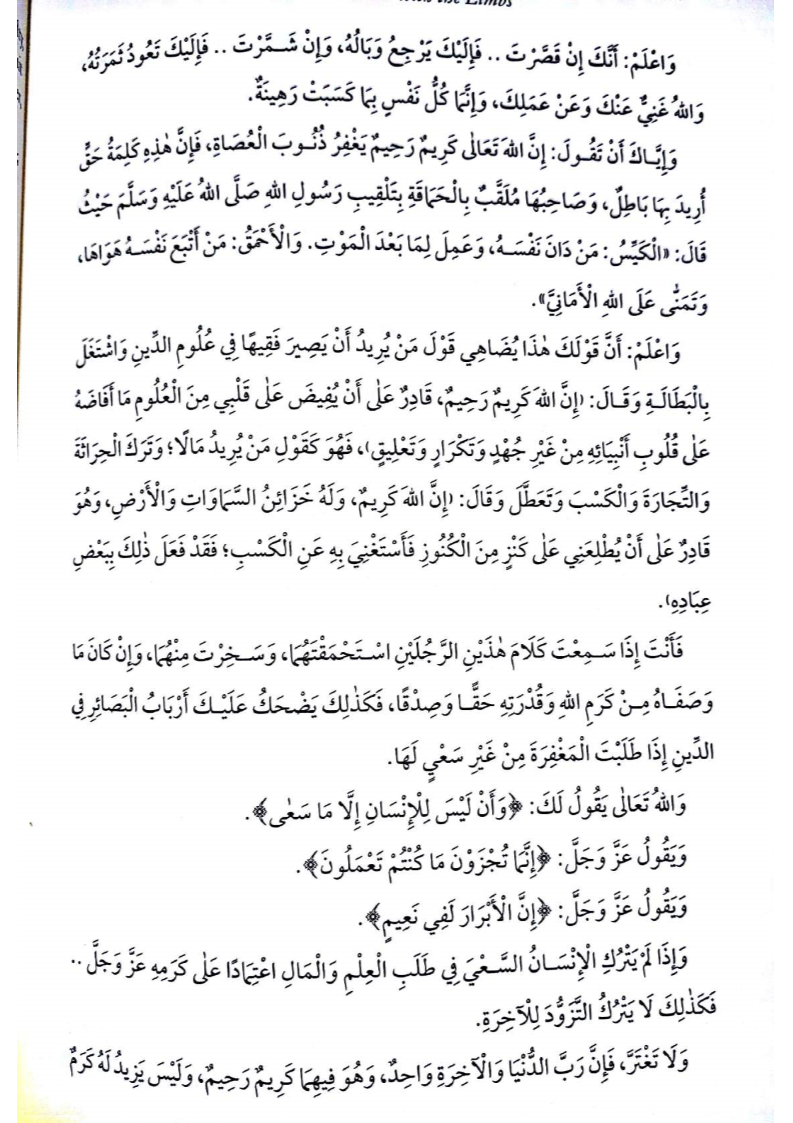 the Limbs
وَاعْلَمْ: أَنَّكَ إِنْ قَصَّرْتَ .. فَإِلَيْكَ يَرْجِعُ وَبَالُهُ، وَإِنْ شَمَّرْتَ .. فَإِلَيْكَ تَعُودُ ثَمَرَتُهُ،
وَاللهُ غَنِيٌّ عَنْكَ وَعَنْ عَمَلِكَ، وَإِنَّمَا كُلُّ نَفْسٍ بِمَا كَسَبَتْ رَهِينَةٌ.
وَإِيَّاكَ أَنْ تَقُولَ: إِنَّ اللهَ تَعَالَى كَرِيمٌ رَحِيمٌ يَغْفِرُ ذُنُوبَ الْعُصَاةِ، فَإِنَّ هٰذِهِ كَلِمَةُ حَقٍّ
أُرِيدَ بِهَا بَاطِلٌ، وَصَاحِبُهَا مُلَقَّبٌ بِالْحَمَاقَةِ بِتَلْقِيبِ رَسُولِ اللهِ صَلَّى اللهُ عَلَيْهِ وَسَلَّمَ حَيْثُ
قَالَ: «الْكَيِّسُ: مَنْ دَانَ نَفْسَهُ، وَعَمِلَ لِمَا بَعْدَ الْمَوْتِ. وَالْأَحْمَقُ: مَنْ أَتْبَعَ نَفْسَهُ هَوَاهَا،
وَتَمَنَّى عَلَى اللهِ الْأَمَانِيَّ».
وَاعْلَمْ: أَنَّ قَوْلَكَ هٰذَا يُضَاهِي قَوْلَ مَنْ يُرِيدُ أَنْ يَصِيرَ فَقِيهًا فِي عُلُومِ الدِّينِ وَاشْتَغَلَ
بِالْبَطَالَةِ وَقَالَ: (إِنَّ اللهَ كَرِيمٌ رَحِيمٌ، قَادِرٌ عَلَى أَنْ يُفِيضَ عَلَى قَلْبِي مِنَ الْعُلُومِ مَا أَفَاضَهُ
عَلَى قُلُوبِ أَنْبِيَائِهِ مِنْ غَيْرِ جُهْدٍ وَتَكْرَارٍ وَتَعْلِيقٍ)، فَهُوَ كَقَوْلِ مَنْ يُرِيدُ مَالًا؛ وَتَرَكَ الْحِرَاثَةَ
وَالتِّجَارَةَ وَالْكَسْبَ وَتَعَطَّلَ وَقَالَ: (إِنَّ اللهَ كَرِيمٌ، وَلَهُ خَزَائِنُ السَّمَاوَاتِ وَالْأَرْضِ، وَهُوَ
قَادِرٌ عَلَى أَنْ يُطْلِعَنِي عَلَى كَنْزٍ مِنَ الْكُنُوزِ فَأَسْتَغْنِيَ بِهِ عَنِ الْكَسْبِ؛ فَقَدْ فَعَلَ ذٰلِكَ بِبَعْضِ
عِبَادِهِ).
فَأَنْتَ إِذَا سَمِعْتَ كَلَامَ هٰذَيْنِ الرَّجُلَيْنِ اسْتَحْمَقْتَهُمَا، وَسَخِرْتَ مِنْهُمَا، وَإِنْ كَانَ مَا
وَصَفَاهُ مِنْ كَرَمِ اللهِ وَقُدْرَتِهِ حَقًّا وَصِدْقًا، فَكَذٰلِكَ يَضْحَكُ عَلَيْكَ أَرْبَابُ الْبَصَائِرِ فِي
الدِّينِ إِذَا طَلَبْتَ الْمَغْفِرَةَ مِنْ غَيْرِ سَعْيٍ لَهَا.
وَاللهُ تَعَالَى يَقُولُ لَكَ: ﴿وَأَنْ لَيْسَ لِلْإِنْسَانِ إِلَّا مَا سَعٰى﴾.
وَيَقُولُ عَزَّ وَجَلَّ: ﴿إِنَّمَا تُجْزَوْنَ مَا كُنْتُمْ تَعْمَلُونَ﴾.
وَيَقُولُ عَزَّ وَجَلَّ: ﴿إِنَّ الْأَبْرَارَ لَفِي نَعِيمٍ﴾.
وَإِذَا لَمْ يَتْرُكِ الْإِنْسَانُ السَّعْيَ فِي طَلَبِ الْعِلْمِ وَالْمَالِ اعْتِمَادًا عَلَى كَرَمِهِ عَزَّ وَجَلَّ ..
فَكَذٰلِكَ لَا يَتْرُكُ التَّزَوُّدَ لِلْآخِرَةِ.
وَلَا تَغْتَرَّ، فَإِنَّ رَبَّ الدُّنْيَا وَالْآخِرَةِ وَاحِدٌ، وَهُوَ فِيهِمَا كَرِيمٌ رَحِيمٌ، وَلَيْسَ يَزِيدُ لَهُ كَرَمٌ